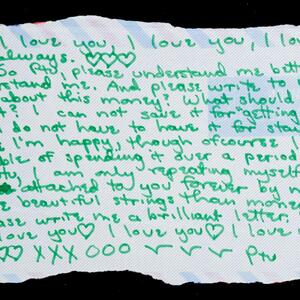 I love you, I love you, I lov
always. ♡♡♡
So Pty, please understand me bett
rstand me. And please write to
about this money! What should
t? I can not save it for "getting
do not have to have it for sta
e I'm happy, though ofcourse I
ble of spending it over a period
ty, I am only repeating myself
attached to you forever by m
e beautiful strings than mone
ease write me a brilliant letter.
ove you♡ I love you♡ I love
♡♡ XXX OOO Ptu